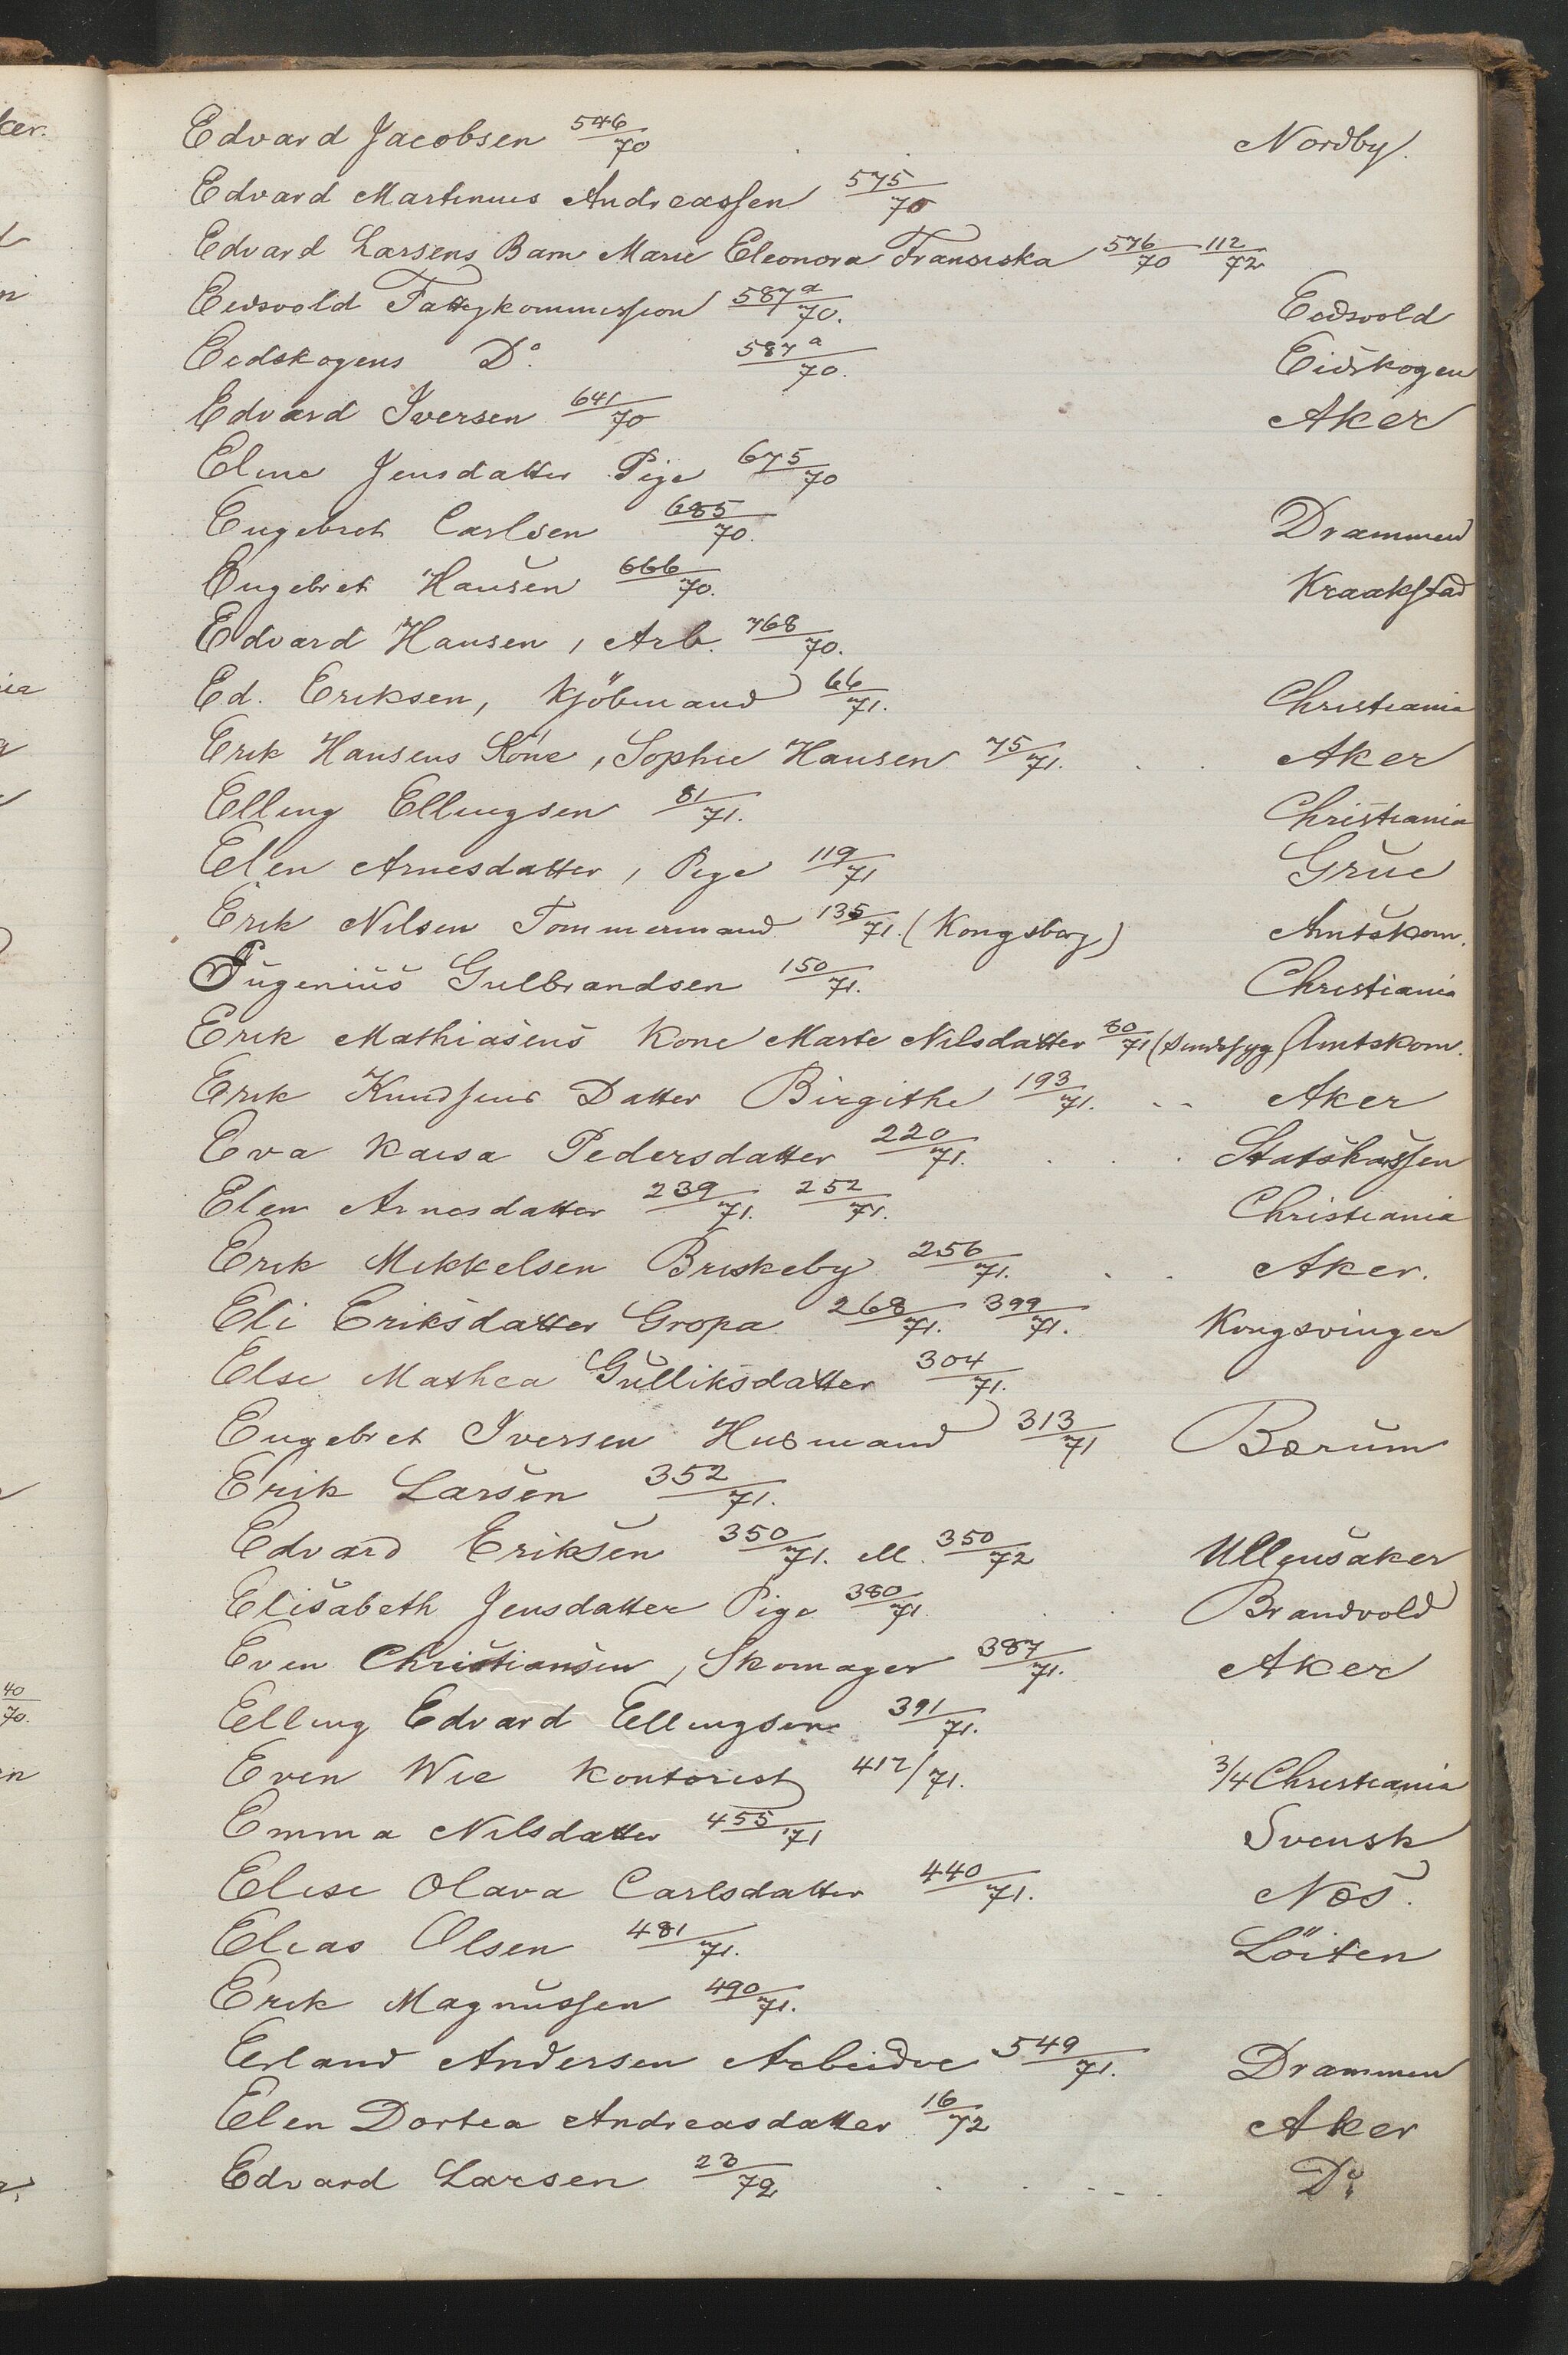 Edvard Jacobsen 546/70 Nordby.
Edvard Martinius Andreassen 575/70
Edvard Larsens Barn Marie Eleonora Fransiska 576/70 112/72
Eidsvold Fattigkommission 587a/70. Eidsvold
Eidskogens Do. 587a/70. Eidskogen
Edvard Iversen 641/70 Aker
Eline Jensdatter Pige 675/70
Engebret Carlsen 685/70. Drammen
Engebret Hansen 666/70. Kraakstad
Edvard Hansen, Arb. 768/70.
Ed. Eriksen, Kjöbmand 66/71. Christiania
Erik Hansens Kone, Sophie Hansen 75/71. Aker
Elling Ellingsen 81/71. Christiania
Elen Arnesdatter, Pige 119/71 Grue
Erik Nilsen Tømmermand 135/71. (Kongsberg) Amtskom.
Eugenius Gulbrandsen 150/71. Christiania
Erik Mathiasens Kone Marte Nilsdatter 80/71 Amtskom.
Erik Knudsens Datter Birgithe 193/71. Aker
Eva Kaisa Pedersdatter 220/71. Statskassen
Elen Arnesdatter 239/71. 252/71. Christiania
Erik Mikkelsen Briskeby 256/71. Aker.
Eli Eriksdatter Gropa 268/71. 399/71. Kongsvinger
Else Mathea Gulliksdatter 304/71.
Engebret Iversen Husmand 313/71 Bærum
Erik Larsen 352/71.
Edvard Eriksen 350/71. ell. 350/72 Ullensaker
Elisabeth Jensdatter Pige 380/71. Brandvold
Even Christiansen, Skomager 387/71. Aker
Elling Edvard Ellingsen 391/71.
Even Wie Kontorist 412/71. 3/4 Christiania
Emma Nilsdatter 455/71 Svensk
Elise Olava Carlsdatter 440/71. Næs.
Elias Olsen 481/71. Löiten
Erik Magnussen 490/71.
Erland Andersen Arbeider 549/71. Drammen
Elen Dortea Andreasdatter 16/72 Aker
Edvard Larsen 23/72 Do.